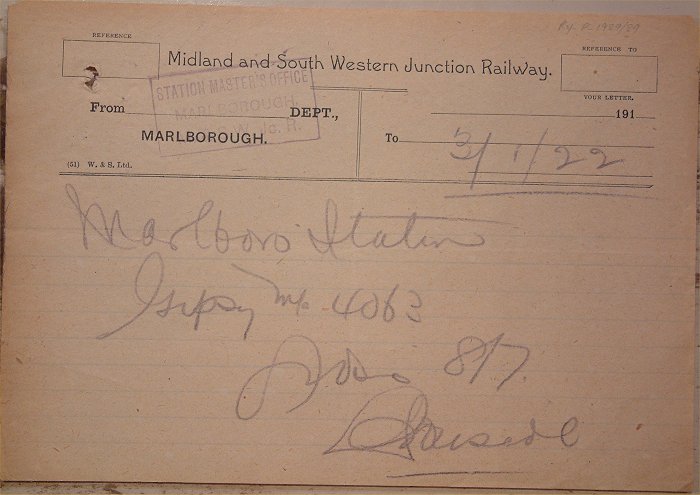 Ry. P. 1989/89
REFERENCE
REFERENCE TO
Midland and South Western Junction Railway.
STATION MASTER'S OFFICE
MARLBOROUGH
Jc. R.
YOUR LETTER.
From DEPT., 191
MARLBOROUGH. To
3/1/22
(51) W. & S. Ltd.
Marlboro' Station
Gipsy 4063
8/7